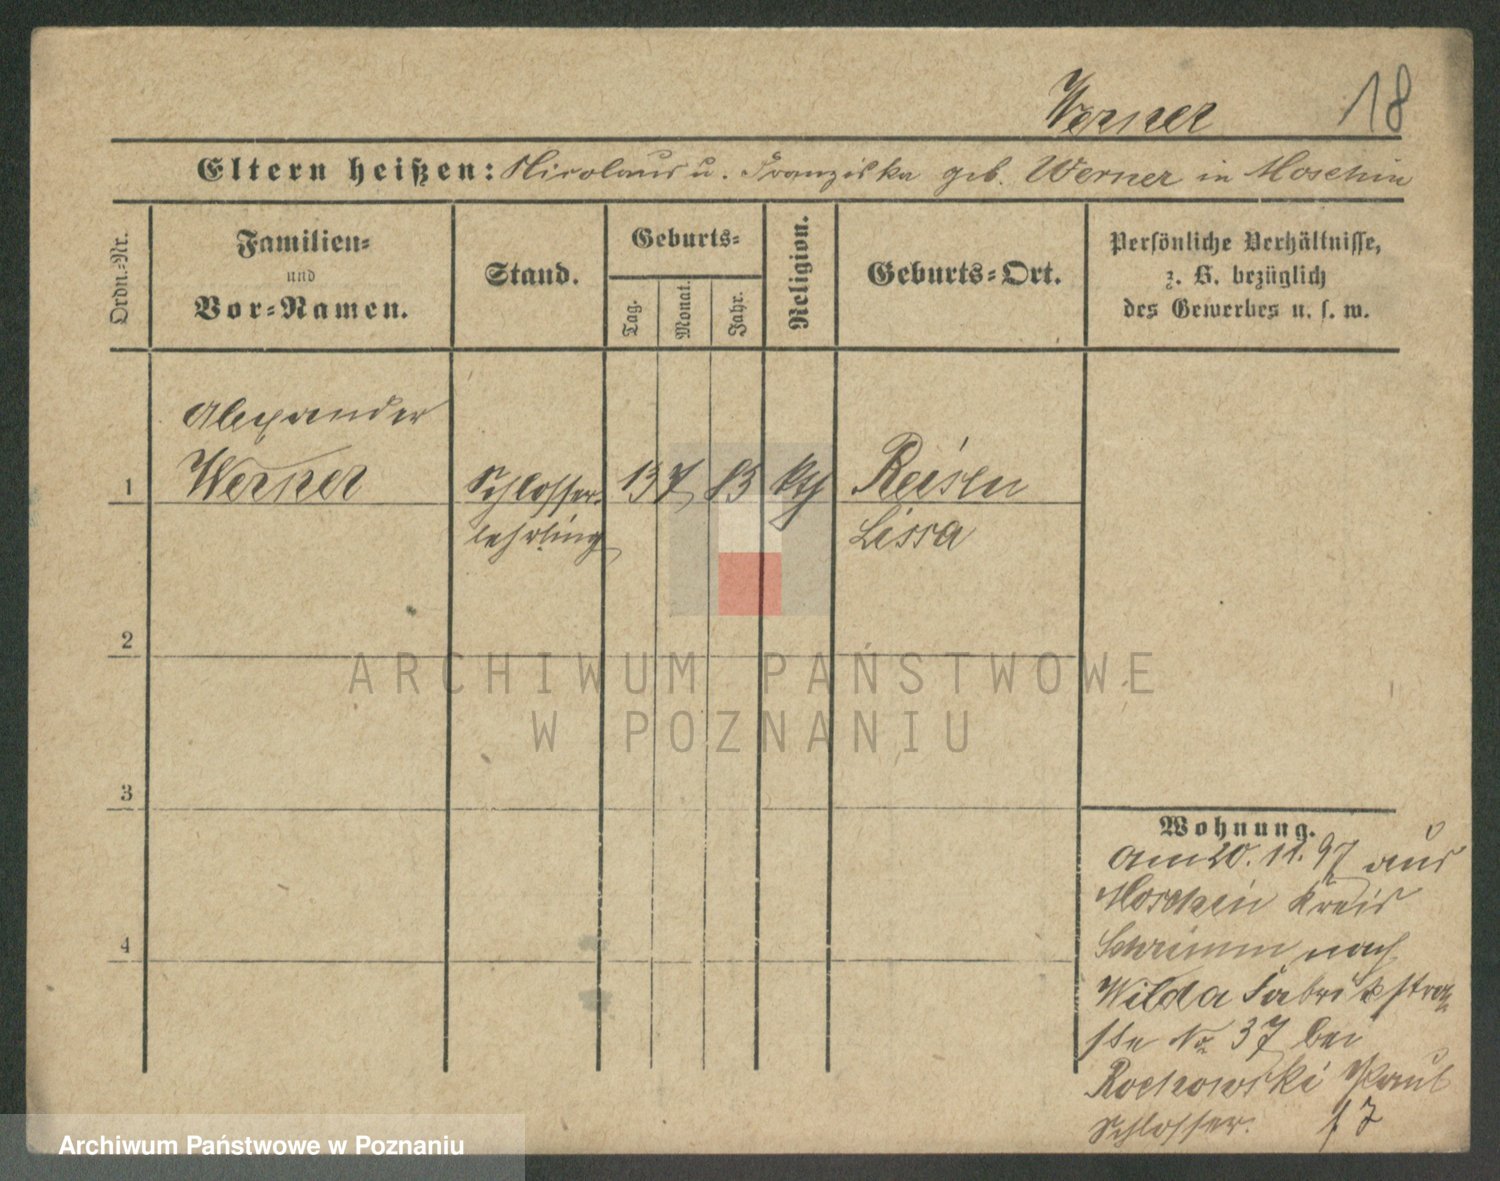 Werner 18
Eltern heißen: Nicolaus u. Franziska geb. Werner in Moschin
Ordn.-Nr.
Familien-
und
Vor-Namen.
Stand.
Geburts-
Tag.
Monat.
Jahr.
Religion.
Geburts-Ort.
Persönliche Verhältnisse,
z. B. bezüglich
des Gewerbes u. s. w.
Alexander
1 Werner Schlosser- 13 7 83 kth Reisen
lehrling Lissa
2
ARCHIWUM PAŃSTWOWE
W POZNANIU
3
Wohnung.
Am 20. 11. 97 aus
Moschin Kreis
4
Schrimm nach
Wilda Fabrikstra-
ße No 37 bei
Rochowski Paul
Schlosser. 17
Archiwum Państwowe w Poznaniu